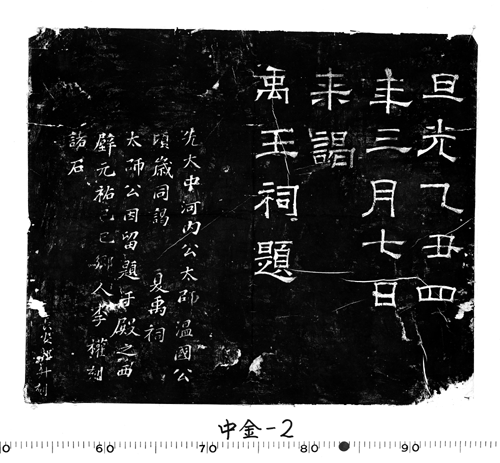 旦光乙丑四
年三月七日
来謁
禹王祠題
先太中河内公太師温國公
頃歳同謁 夏禹祠
太師公因留題于殿之西
壁元祐己巳鄉人李權刻
諸石
刻
中金-2
0 60 70 80 90